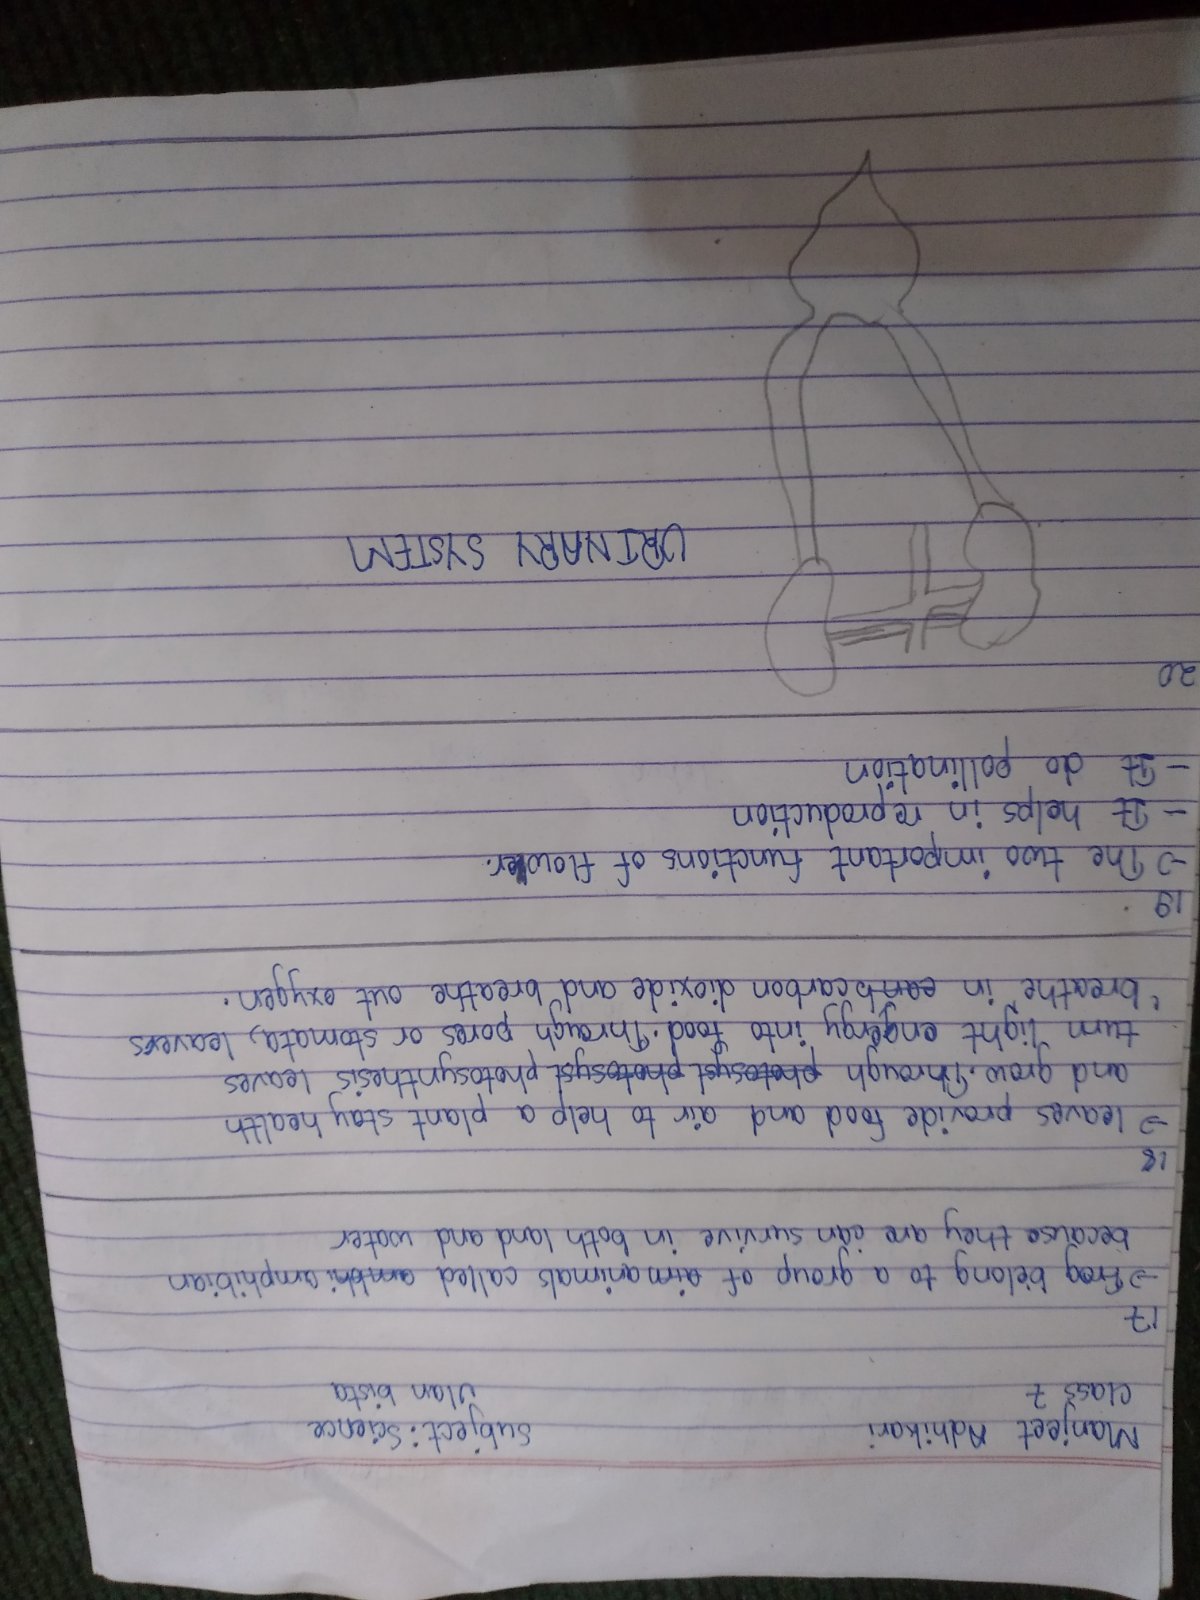 Manjeet Adhikari Subject: Science
class 7 Jlan bista
17
→ Frog belong to a group of aimanimals called ambhi amphibian
because they are can survive in both land and water
18
→ leaves provide food and air to help a plant stay health
and grow. Through photosyst photosyst photosynthesis leaves
turn light energy into food. Through pores or stomata, leaves
'breathe' in carb carbon dioxide and breathe out oxygen.
19
→ The two important functions of flower.
- It helps in reproduction
- It do pollination
20
URINARY SYSTEM